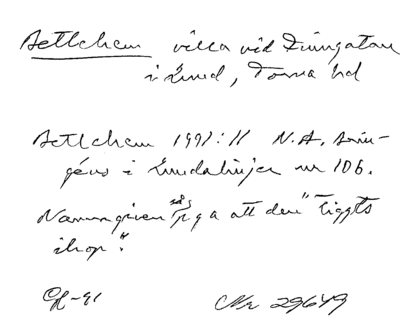 Betlehem villa vid Tunngatan
i Lund, Torna hd
Betlehem 1991:11 N.A. Brin-
géus i Lundalinjer nr 106.
Namngiven så p g a att den "tiggts
ihop".
Gf-91 Nr 29649